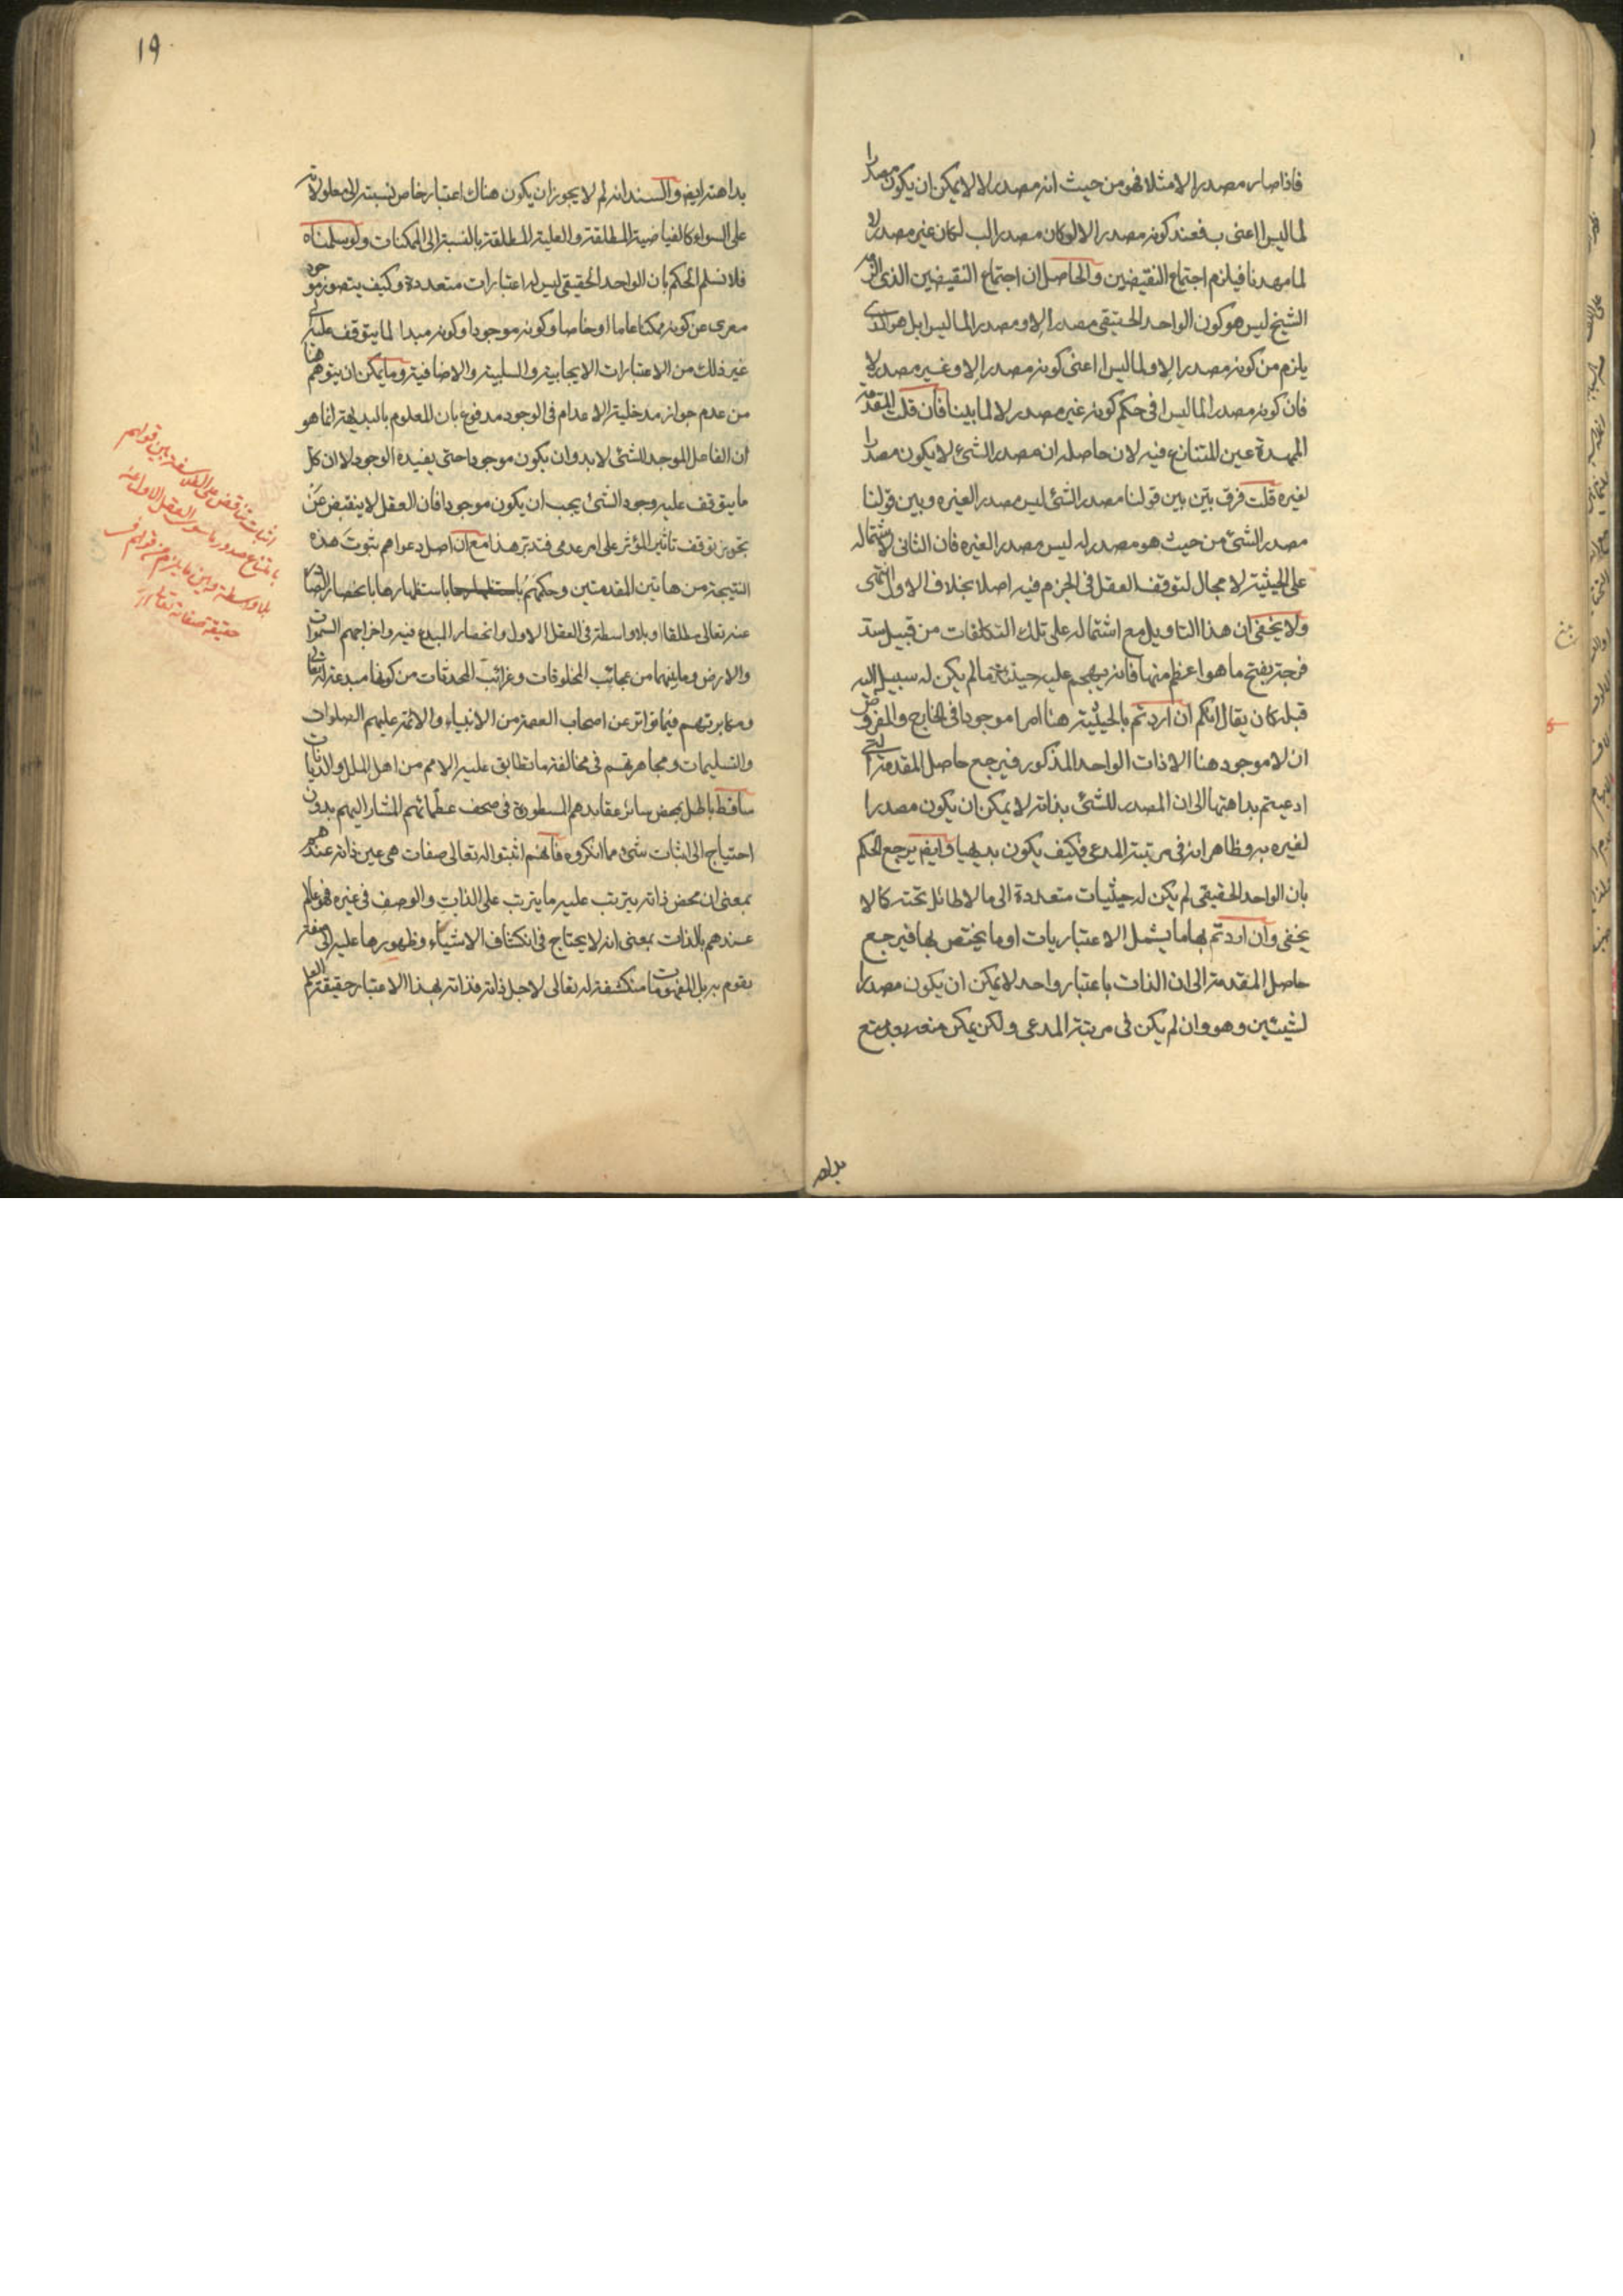 فاذا صار مصدرا لا مثلا فهو من حيث انه مصدر لا لا يمكن ان يكون مصدرا
لما ليس ا اعنى ب فعند كونه مصدرا لا لو كان مصدرا لب لكان غير مصدر لا
لما مهدنا فيلزم اجتماع النقيضين والحاصل ان اجتماع النقيضين الذى الزمه
الشيخ ليس هو كون الواحد الحقيقى مصدرا لا و مصدرا لما ليس ا بل هو الذى
يلزم من كونه مصدرا لا و لما ليس ا اعنى كونه مصدرا لا و غير مصدر لا
فان كونه مصدرا لما ليس ا فى حكم كونه غير مصدر لا لما بينا فان قلت المقدمة
الممهدة عين المتنازع فيه لان حاصله ان مصدر الشئ لا يكون مصدرا
لغيره قلت فرق بيّن بين قولنا مصدر الشئ ليس مصدرا لغيره وبين قولنا
مصدر الشئ من حيث هو مصدر له ليس مصدرا لغيره فان الثانى لاشتماله
على الحيثية لا مجال لتوقف العقل فى الجزم فيه اصلا بخلاف الاول انتهى
ولا يخفى ان هذا التاويل مع اشتماله على تلك التكلفات من قبيل سد
فرجة بفتح ما هو اعظم منها فانه يهجم عليه حينئذ ما لم يكن له سبيل اليه
قبله كان يقال انكم ان اردتم بالحيثية هنا امرا موجودا فى الخارج والمفروض
ان لا موجود هنا الا ذات الواحد المذكور فيرجع حاصل المقدمة التى
ادعيتم بداهتها الى ان المصدر للشئ بذاته لا يمكن ان يكون مصدرا
لغيره به وظاهر انه فى مرتبة المدعى فكيف يكون بديهيا وايضا يرجع الحكم
بان الواحد الحقيقى لم يكن له حيثيات متعددة الى ما لا طائل تحته كما لا
يخفى وان اردتم بها ما يشمل الاعتباريات او ما يختص بها فيرجع
حاصل المقدمة الى ان الذات باعتبار واحد لا يمكن ان يكون مصدرا
لشيئين وهو وان لم يكن فى مرتبة المدعى ولكن يمكن منعه ومنع
بداهـ
١٩
بداهته ايضا والسند انه لم لا يجوز ان يكون هناك اعتبار خاص نسبته الى معلولاته
على السواء كالفياضية المطلقة والعلية المطلقة بالنسبة الى الممكنات ولو سلمناه
فلا نسلم الحكم بان الواحد الحقيقى ليس له اعتبارات متعددة وكيف يتصور موجود
معرى عن كونه ممكنا عاما او خاصا وكونه موجودا وكونه مبدا لما يتوقف عليه الى
غير ذلك من الاعتبارات الايجابية والسلبية والاضافية وما يمكن ان يتوهم هنا
من عدم جواز مدخلية الاعدام فى الوجود مدفوع بان المعلوم بالبديهة انما هو
ان الفاعل الموجد للشئ لا بد وان يكون موجودا حتى يفيده الوجود لا ان كل
ما يتوقف عليه وجود الشئ يجب ان يكون موجودا فان العقل لا ينقبض عن
تجويز توقف تاثير المؤثر على امر عدمى فتدبر هذا مع ان اصل دعواهم ثبوت هذه
النتيجة من هاتين المقدمتين وحكمهم باستظهارها بانحصار الصادر
عنه تعالى مطلقا او بلا واسطة فى العقل الاول وانحصار المبدع فيه واخراجهم السموات
والارض وما بينهما من عجائب المخلوقات وغرائب المحدثات من كونها مبدعة له تعالى
ومكابرتهم فيما تواتر عن اصحاب العصمة من الانبياء والائمة عليهم الصلوات
والتسليمات ومجاهرتهم فى مخالفة ما تطابق عليه الامم من اهل الملل والديانات
ساقط باطل بمحض سائر عقايدهم المسطورة فى صحف عظمائهم المشار اليهم بدون
احتياج الى اثبات شئ مما انكروه فانهم اثبتوا له تعالى صفات هى عين ذاته عندهم
بمعنى ان محض ذاته يترتب عليه ما يترتب على الذات والوصف فى غيره فهو عالم
عندهم بالذات بمعنى انه لا يحتاج فى انكشاف الاشياء وظهورها عليه الى صفة
يقوم به بل المفهومات منكشفة له تعالى لاجل ذاته فذاته بهذا الاعتبار حقيقة العلم
اثبات تناقض على الفلاسفة بين قولهم
بامتناع صدور ما سوى العقل الاول عنه
بلا واسطة وبين ما يلزم من قولهم فى
حقيقة صفاته تعالى